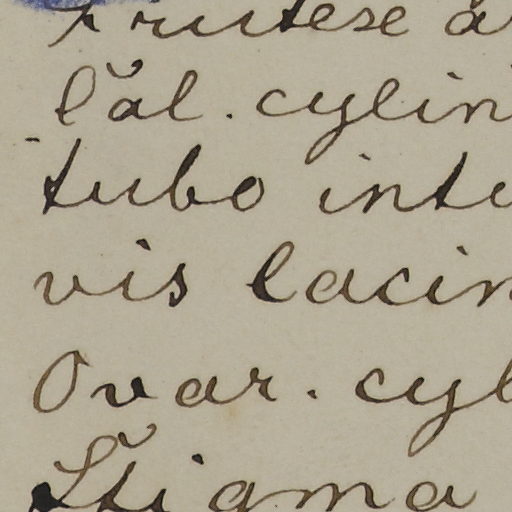 Frutese a
Căl. cylin
tubo inte
vis lacin
Ovar. cyl
Stigma